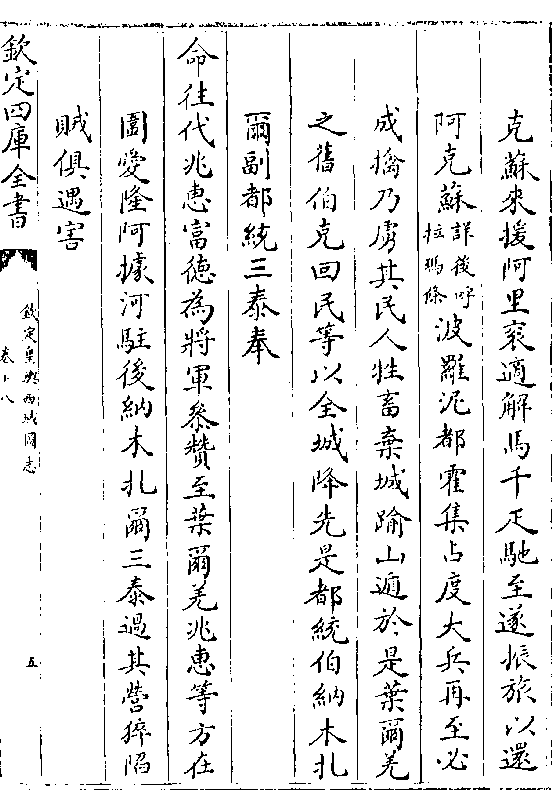 克蘇來援阿里袞適解馬千疋馳至遂振旅以還
阿克蘇詳後呼拉瑪條波羅泥都霍集占度大兵再至必
成擒乃虜其民人牲畜棄城踰山遁於是葉爾羌
之舊伯克回民等以全城降先是都統伯納木扎
爾副都統三泰奉
命往代兆惠富德為將軍參贊至葉爾羌兆惠等方在
圍愛隆阿據河駐後納木扎爾三泰過其營猝陷
賊俱遇害
欽定四庫全書
欽定皇輿西域圖志
卷十八
五